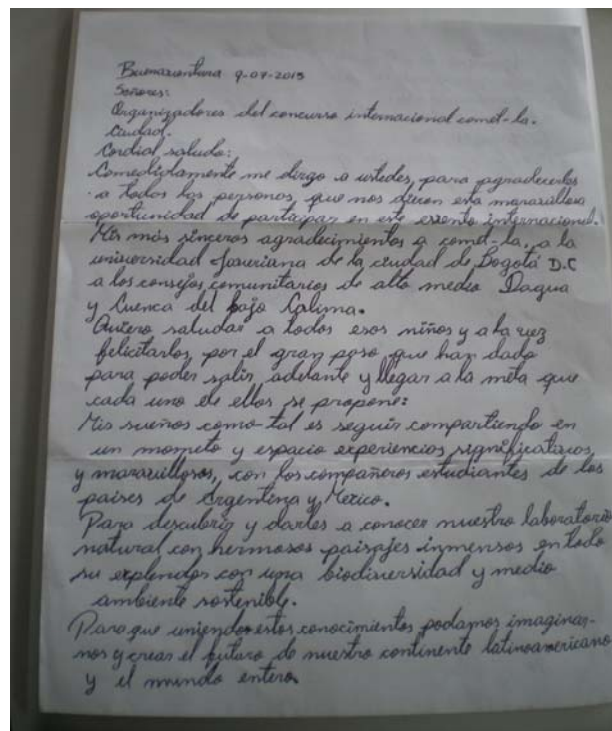 Buenaventura 9-07-2013
Señores:
Organizadores del concurso internacional comet-la.
Ciudad.
Cordial saludo:
Comedidamente me dirgo a ustedes, para agradecerles
a todos las personas, que nos dieron esta maravillosa
oportunidad de participar en este evento internacional.
Mis más sinceros agradecimientos a comet-la, a la
universidad Javeriana de la ciudad de Bogotá D.C
a los consejos comunitarios de alto medio Dagua
y Cuenca del bajo Calima.
Quiero saludar a todos esos niños y a la vez
felicitarlos, por el gran paso que han dado
para poder salir adelante y llegar a la meta que
cada uno de ellos se propone:
Mis sueños como tal es seguir compartiendo en
un momento y espacio experiencias significativas
y maravillosas, con los compañeros estudiantes de los
paises de Argentina y Mexico.
Para descubrir y darles a conocer nuestro laboratorio
natural con hermosos paisajes inmensos en todo
su explendor con una biodiversidad y medio
ambiente sostenible.
Para que uniendo estos conocimientos podamos imaginar-
nos y crear el futuro de nuestro continente latinoamericano
y el mundo entero.